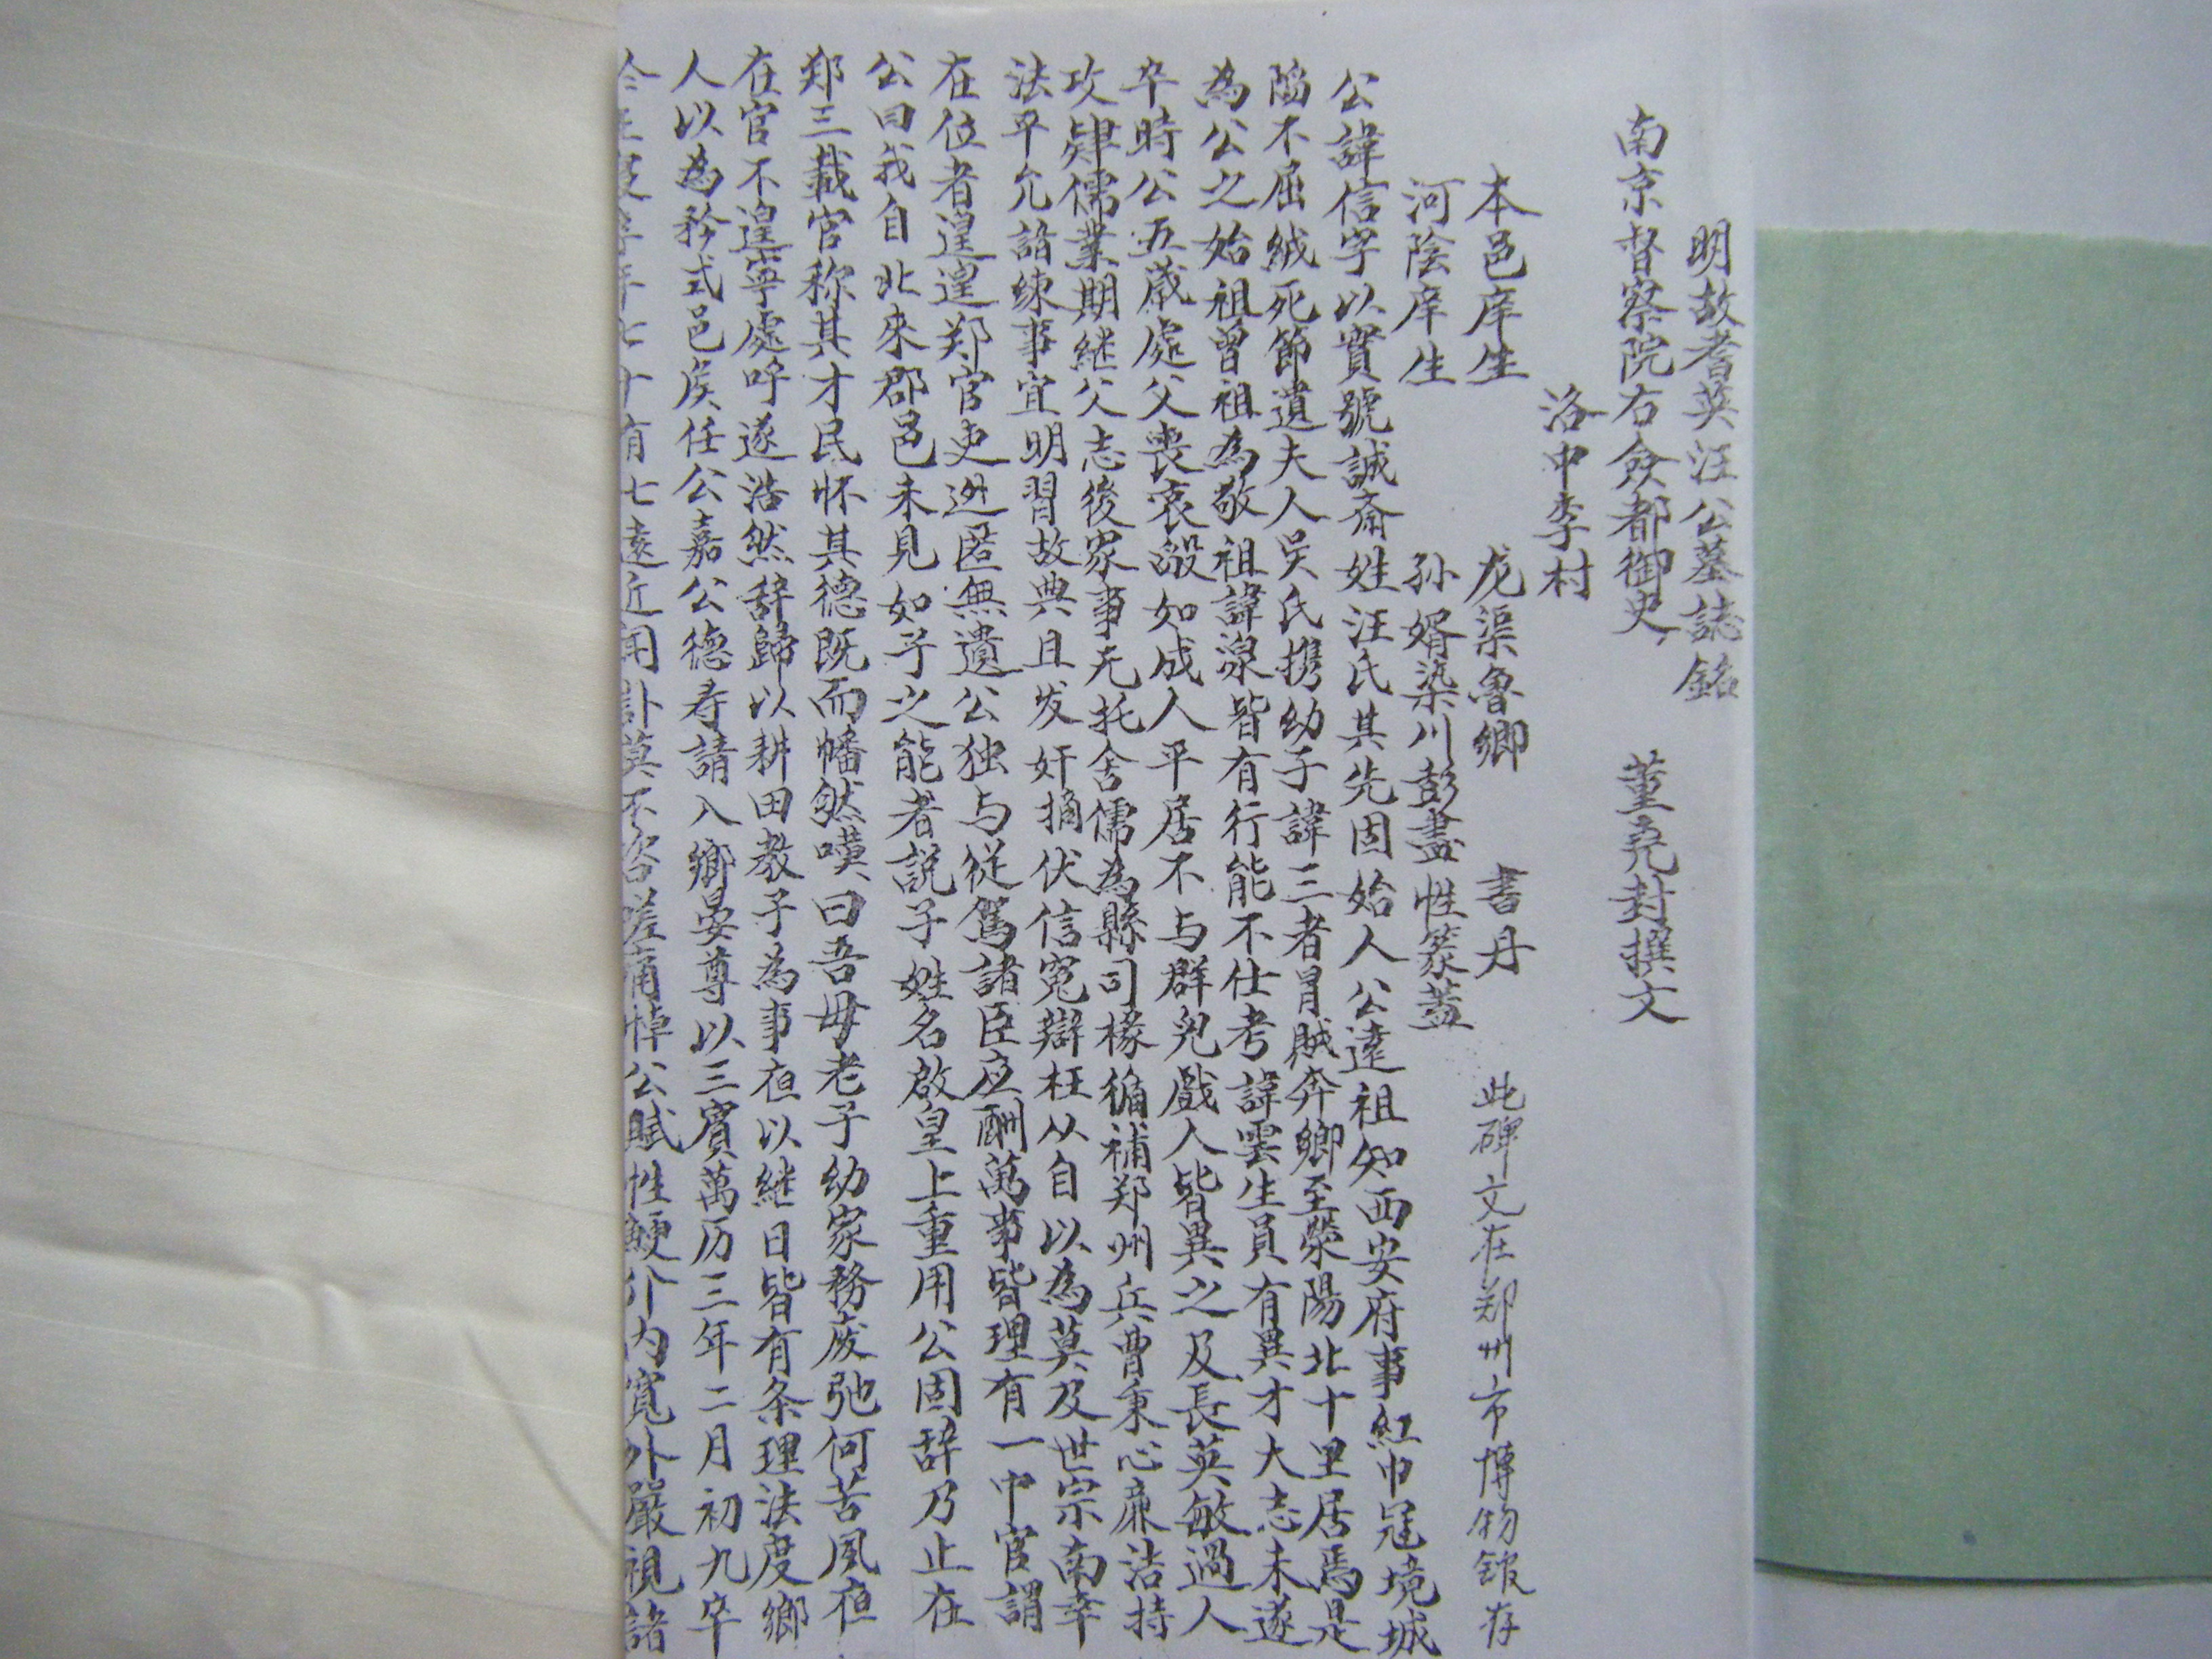 明故耆英汪公墓誌銘
南京督察院右僉都御史 董堯封撰文
洛中李村
本邑庠生 龙渠魯卿 書丹
河陰庠生 孙婿染川彭盡性篆蓋
此碑文在郑州市博物馆存
公諱信字以實號誠斎姓汪氏其先固始人公遠祖知西安府事紅巾冦境城
陷不屈絨死節遺夫人吴氏携幼子諱三者冒賊奔鄉至滎陽北十里居焉是
為公之始祖曾祖為敬祖諱湶皆有行能不仕考諱雲生員有異才大志未遂
卒時公五歲處父喪哀毀如成人平居不与群児戲人皆異之及長英敏過人
攻肄儒業期継父志後家事无托舍儒為縣司椽循補郑州兵曹秉心亷洁持
法平允諳練事宜明習故典且发奸摘伏信寃辯枉从自以為莫及世宗南幸
在位者遑遑郑官吏迯匿無遺公独与從駕諸臣应酬萬事皆理有一中官謂
公曰我自北來郡邑未見如子之能者説子姓名啟皇上重用公固辞乃止在
郑三載官称其才民怀其德既而幡然嘆曰吾毋老子幼家務废弛何苦夙夜
在官不遑寧處呼遂浩然辞歸以耕田教子為事夜以継日皆有条理法度鄉
人以為矜式邑矦任公嘉公德寿請入鄉晏尊以三賓萬历三年二月初九卒
十有七遠近闻訃莫不咨嗟痛悼公賦性鯁介内寬外嚴視諸